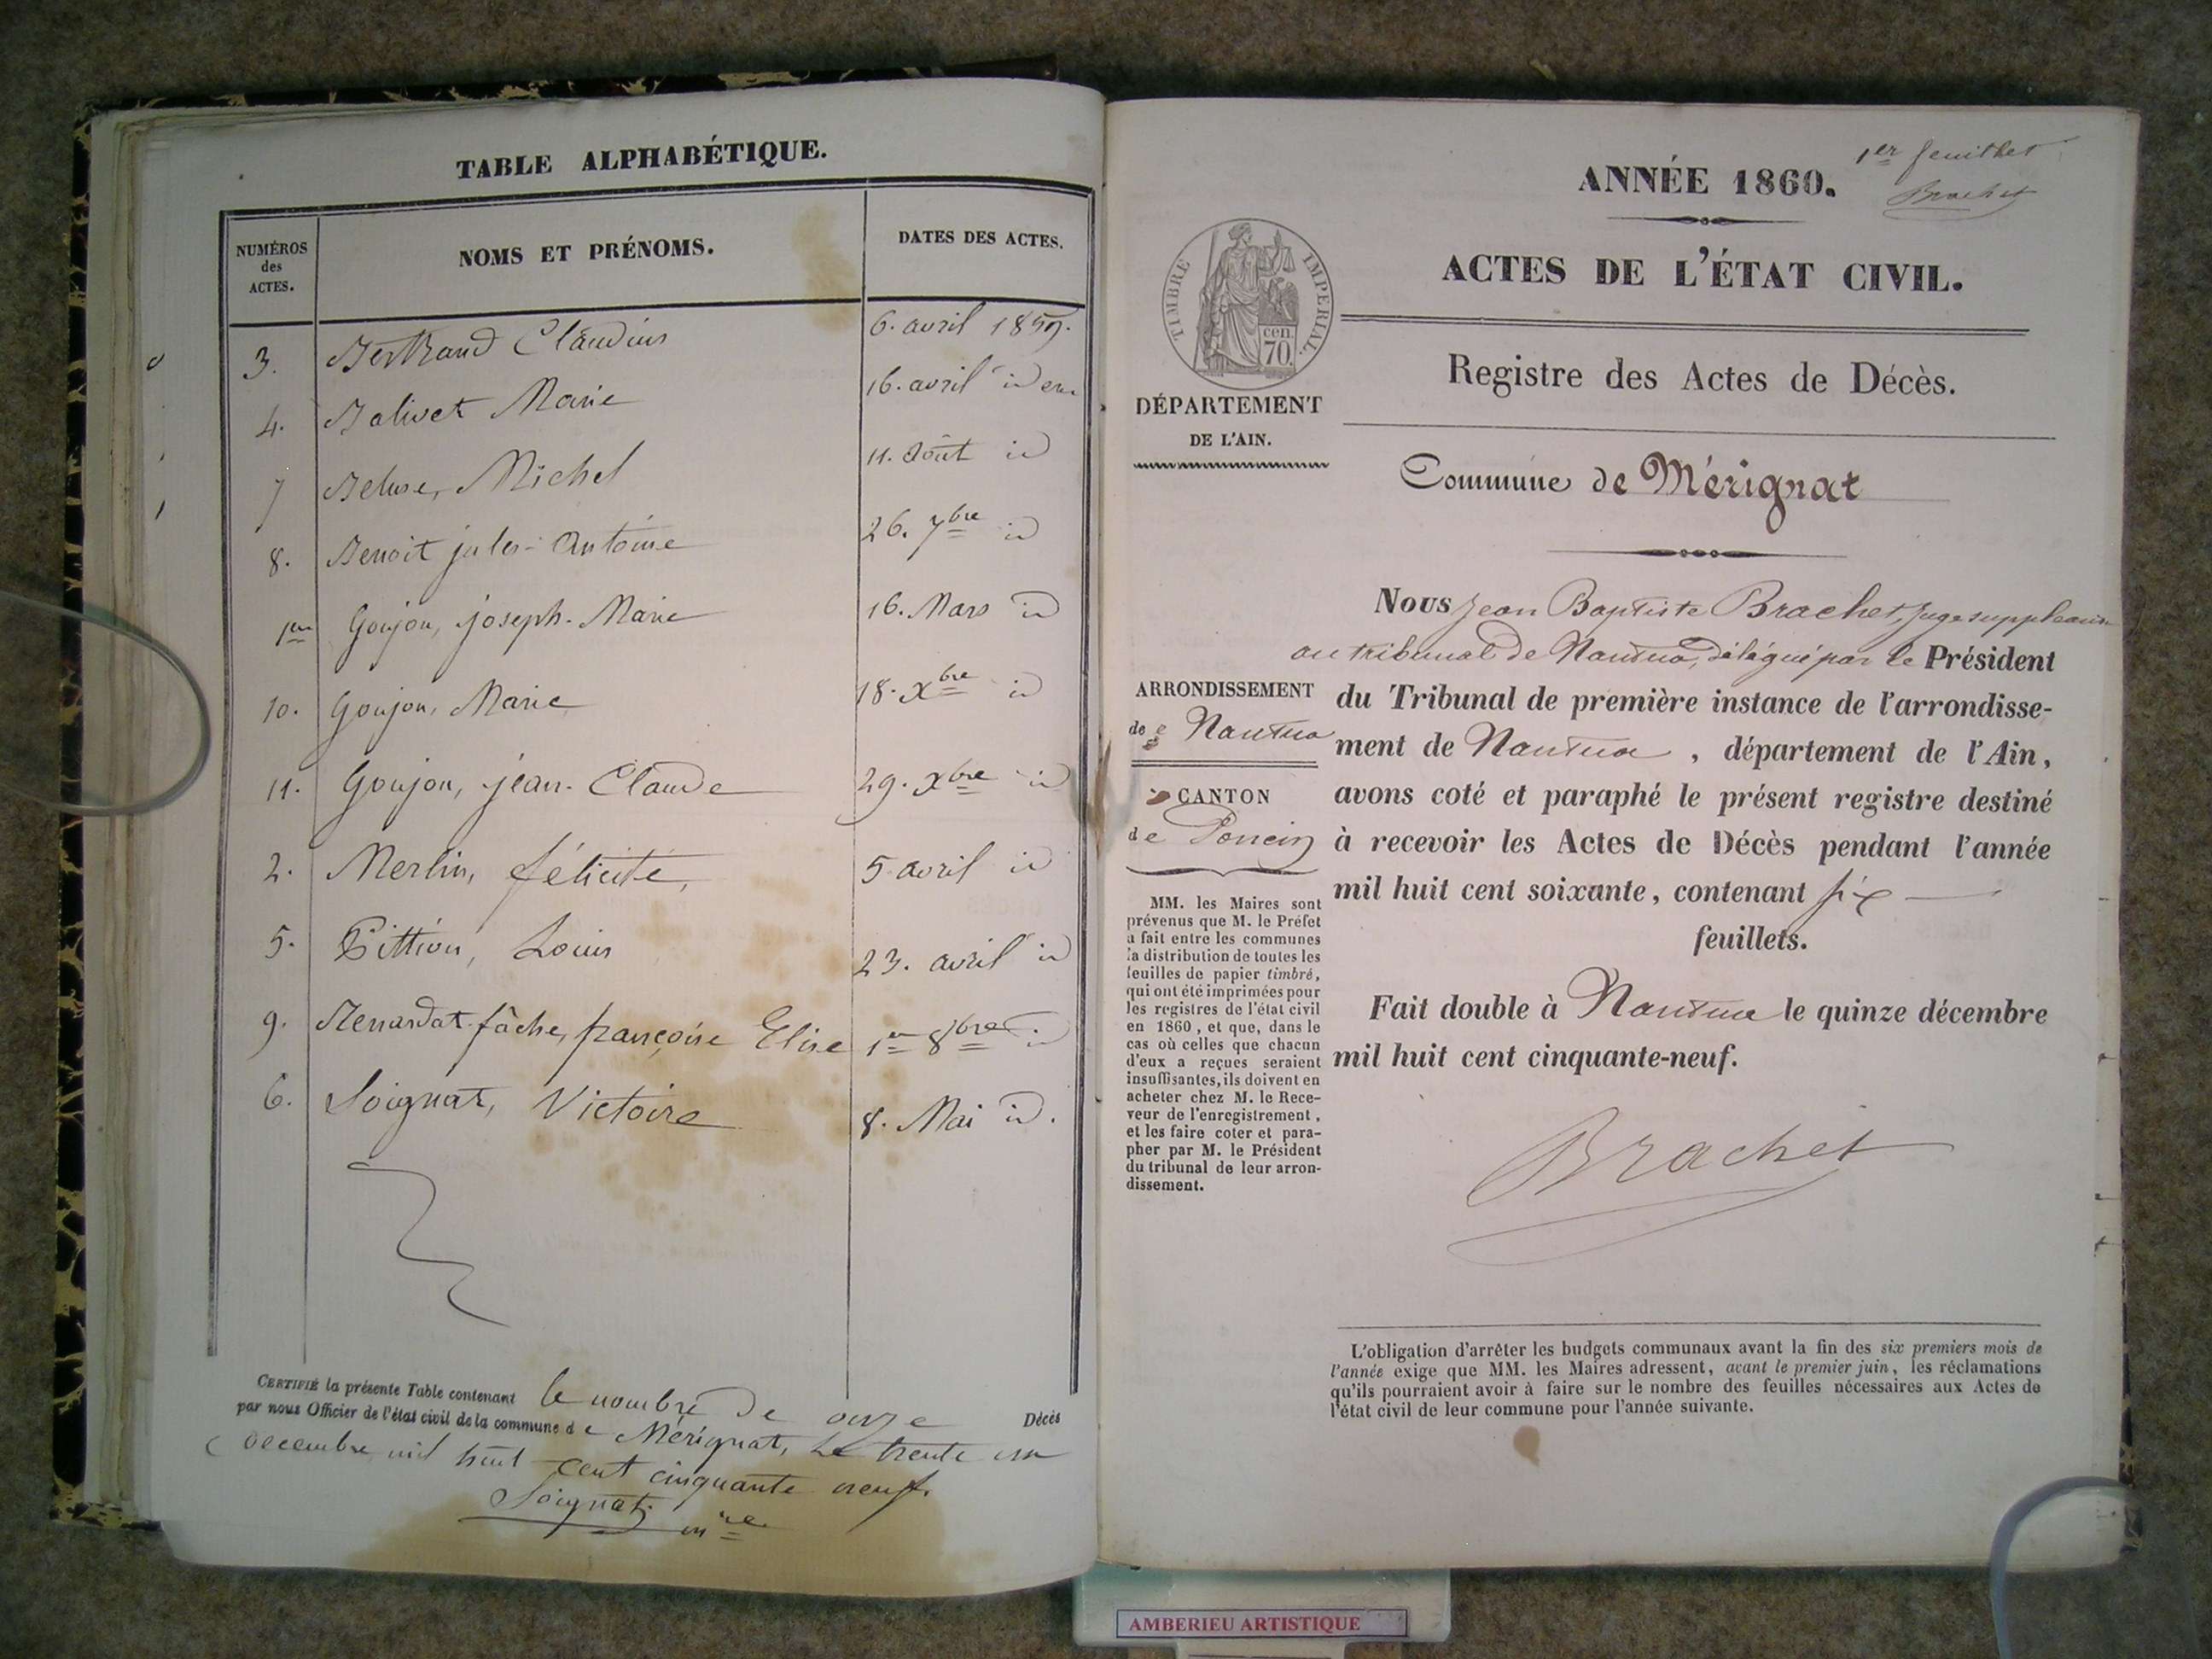 TABLE ALPHABÉTIQUE.
NUMÉROS des ACTES. NOMS ET PRÉNOMS. DATES DES ACTES.
3. Bertrand Claudius 6. avril 1859.
4. Balivet Marie 16. avril idem
7 Michel 11. Août id
8. Benoit jules-Antoine 26. 7bre id
1er Goujon, joseph-Marie 16. Mars id
10. Goujon, Marie 18. Xbre id
11. Goujon, jean-Claude 29. Xbre id
2. Merlin, félicité, 5 avril id
5. Pittion, Louis 23. avril id
9. Renardat-fâche, françoise Elise 1er 8bre id
6. Soignat, Victoire 8. Mai id.
CERTIFIÉ la présente Table contenant le nombre de onze Décès
par nous Officier de l'état civil de la commune de Mérignat, Le trente un
décembre mil huit cent cinquante neuf.
Soignat. mre
1er feuillet
Brachet
ANNÉE 1860.
ACTES DE L'ÉTAT CIVIL.
TIMBRE IMPERIAL.
cen.
70.
Registre des Actes de Décès.
DÉPARTEMENT
DE L'AIN.
Commune de Mérignat
ARRONDISSEMENT
de Nantua
CANTON
de Poncin
MM. les Maires sont
prévenus que M. le Préfet
a fait entre les communes
la distribution de toutes les
feuilles de papier timbré,
qui ont été imprimées pour
les registres de l'état civil
en 1860, et que, dans le
cas où celles que chacun
d'eux a reçues seraient
insuffisantes, ils doivent en
acheter chez M. le Rece-
veur de l'enregistrement,
et les faire coter et para-
pher par M. le Président
du tribunal de leur arron-
dissement.
Nous Jean Baptiste Brachet, juge suppléant
au tribunal de Nantua, délégué par le Président
du Tribunal de première instance de l'arrondisse-
ment de Nantua, département de l'Ain,
avons coté et paraphé le présent registre destiné
à recevoir les Actes de Décès pendant l'année
mil huit cent soixante, contenant six
feuillets.
Fait double à Nantua le quinze décembre
mil huit cent cinquante-neuf.
Brachet
L'obligation d'arrêter les budgets communaux avant la fin des six premiers mois de
l'année exige que MM. les Maires adressent, avant le premier juin, les réclamations
qu'ils pourraient avoir à faire sur le nombre des feuilles nécessaires aux Actes de
l'état civil de leur commune pour l'année suivante.
AMBERIEU ARTISTIQUE